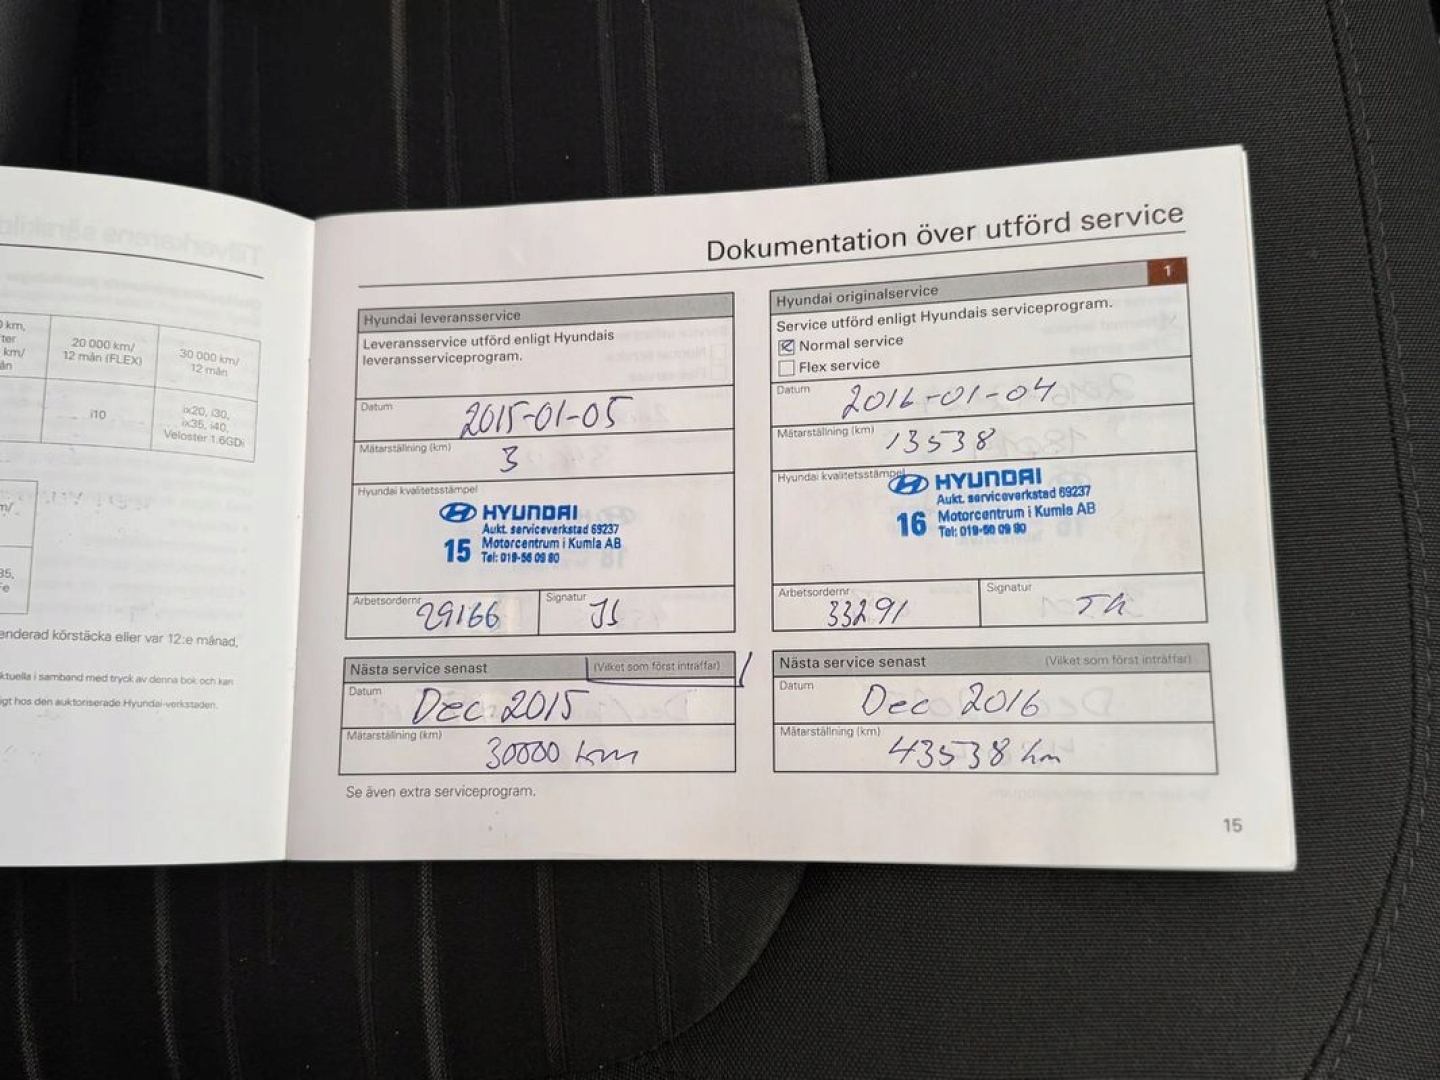 km,
ter
km/
ån
20 000 km/
12 mån (FLEX)
30 000 km/
12 mån
i10
ix20, i30,
ix35, i40,
Veloster 1.6GDi
m/
35,
e
enderad körstäcka eller var 12:e månad,
ktuella i samband med tryck av denna bok och kan
igt hos den auktoriserade Hyundai-verkstaden.
Dokumentation över utförd service
Hyundai leveransservice
Leveransservice utförd enligt Hyundais
leveransserviceprogram.
Datum
2015-01-05
Mätarställning (km)
3
Hyundai kvalitetsstämpel
HYUNDAI
Aukt. serviceverkstad 69237
15 Motorcentrum i Kumla AB
Tel: 019-56 09 80
Arbetsordernr
29166
Signatur
JS
Nästa service senast (Vilket som först inträffar)
Datum
Dec 2015
Mätarställning (km)
30000 km
Se även extra serviceprogram.
1
Hyundai originalservice
Service utförd enligt Hyundais serviceprogram.
Normal service
Flex service
Datum
2016-01-04
Mätarställning (km)
13538
Hyundai kvalitetsstämpel
HYUNDAI
Aukt. serviceverkstad 69237
16 Motorcentrum i Kumla AB
Tel: 019-56 09 80
Arbetsordernr
33291
Signatur
Nästa service senast (Vilket som först inträffar)
Datum
Dec 2016
Mätarställning (km)
43538 km
15